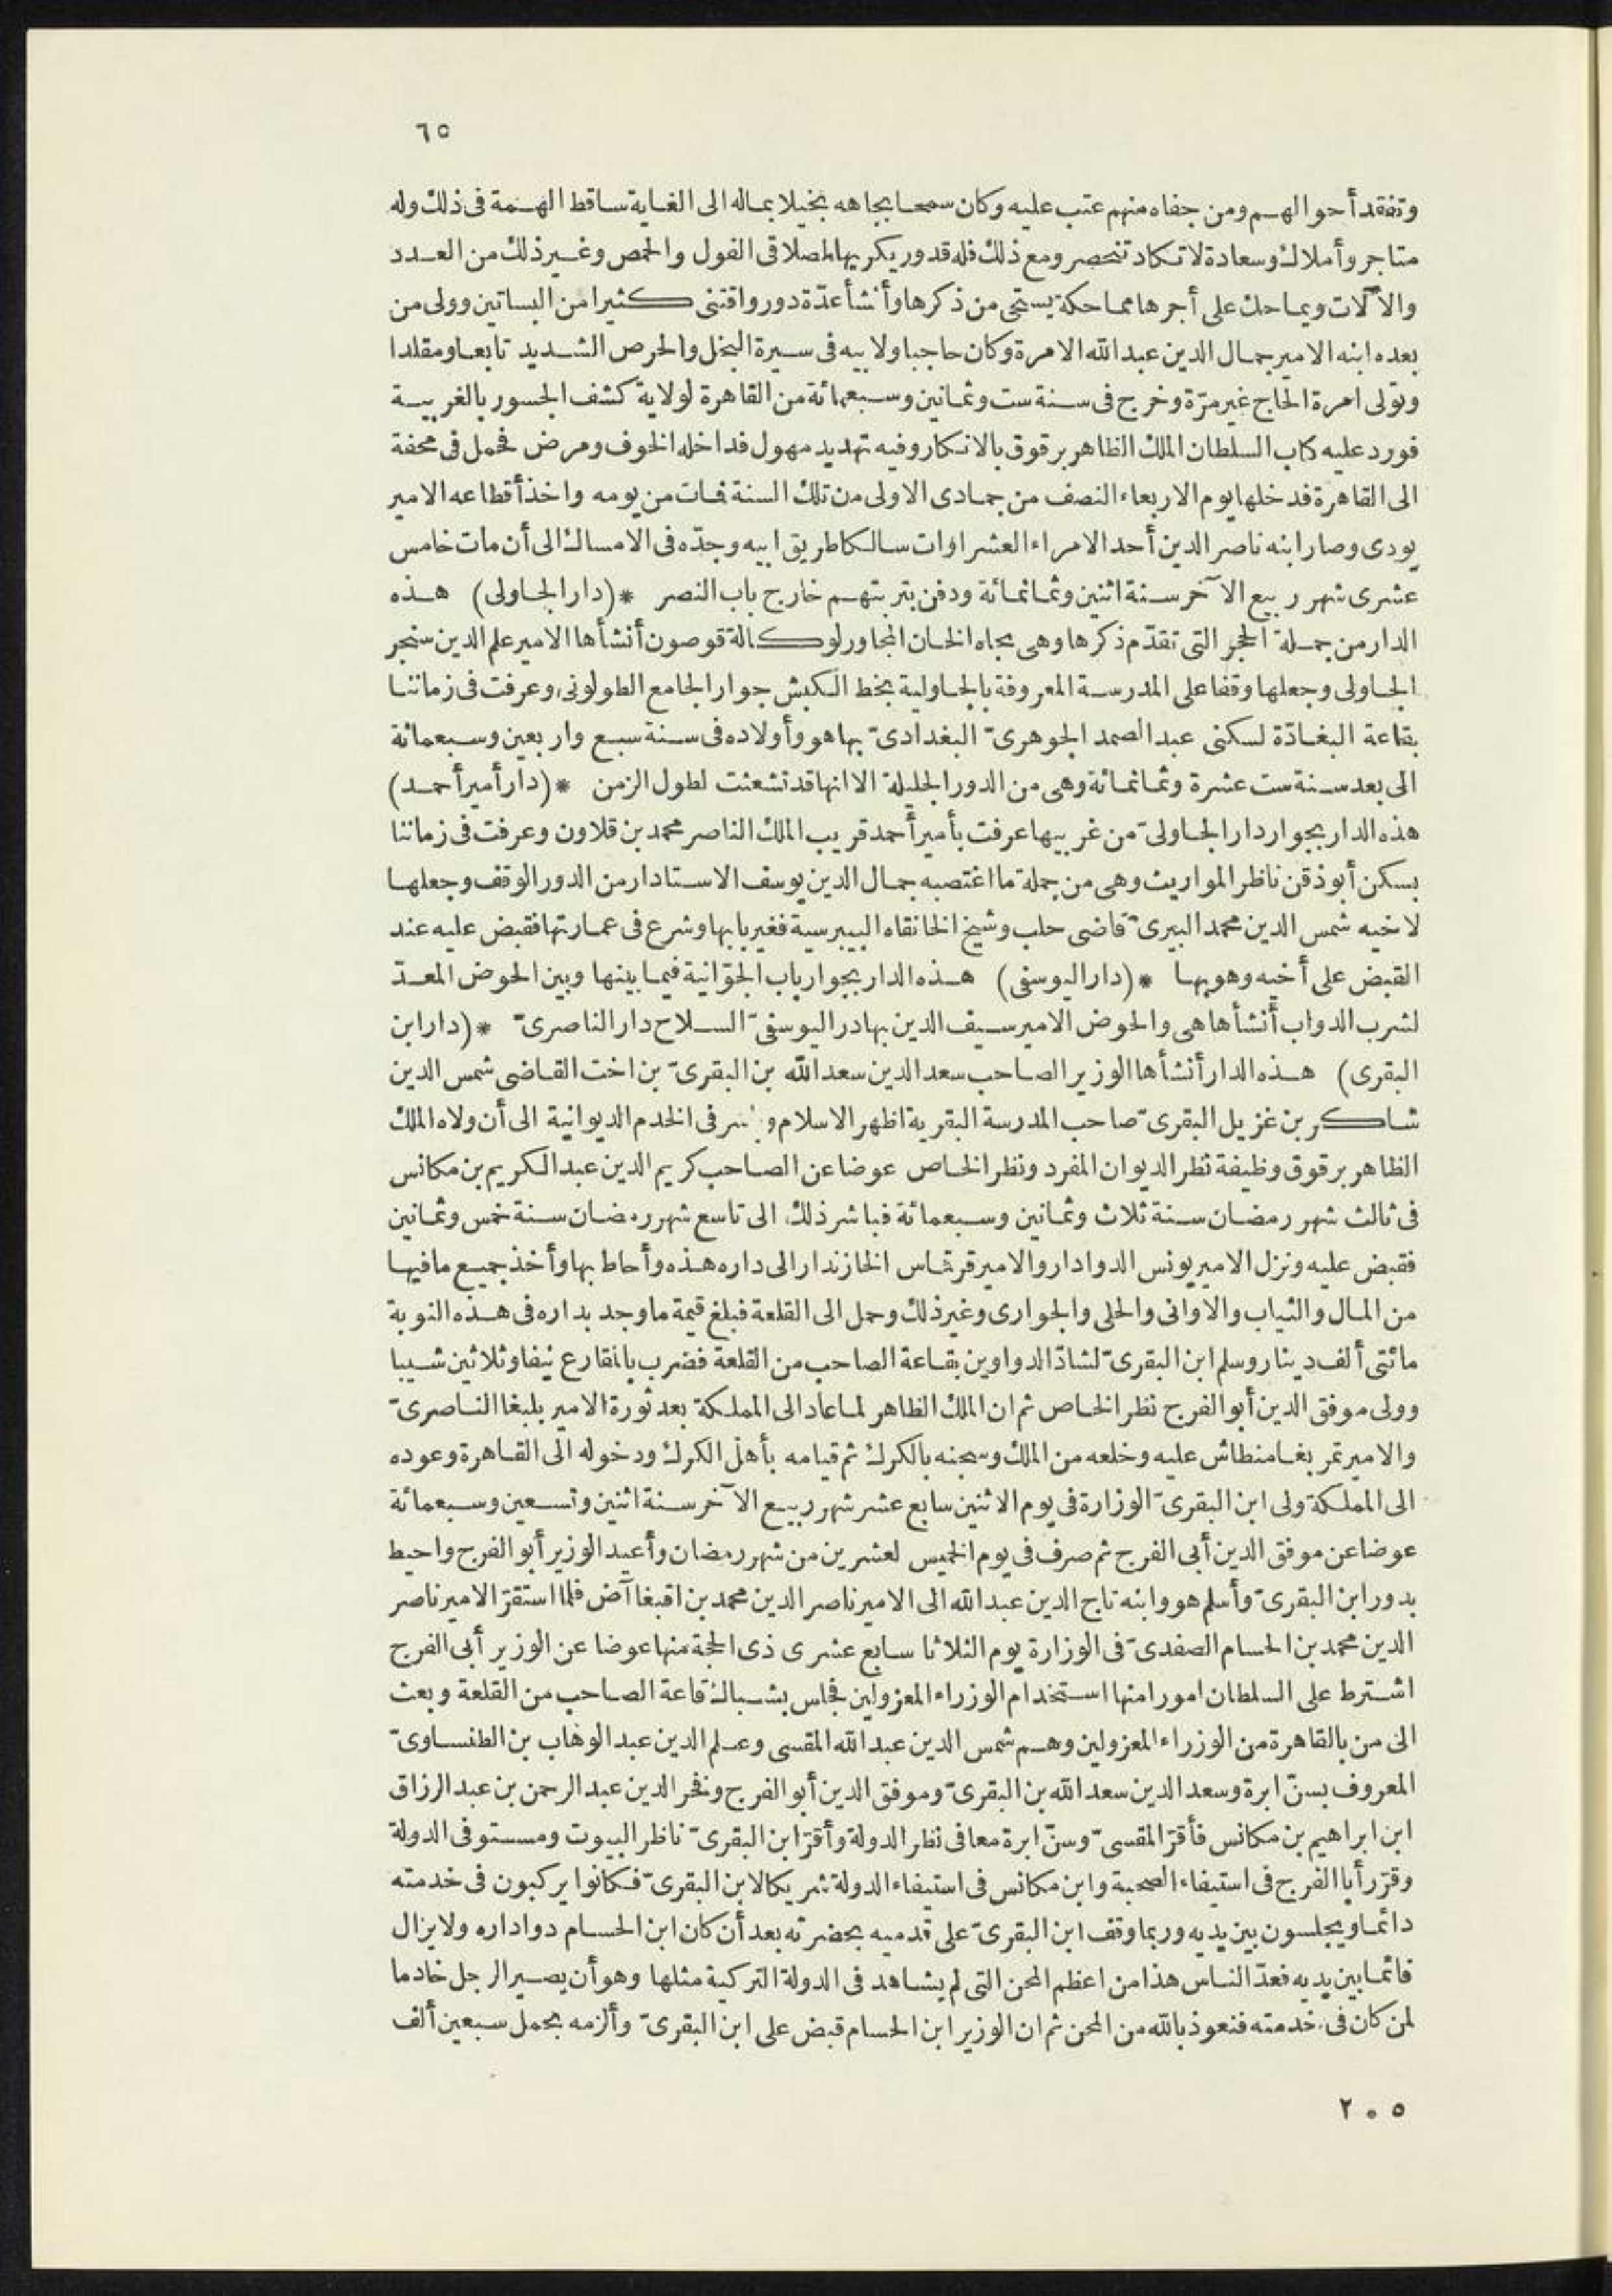 ٦٥
وتفقد أحوالهم ومن جفاه منهم عتب عليه وكان سمحا بجاهه بخيلا بماله الى الغاية ساقط الهمة فى ذلك وله
متاجر وأملاك وسعادة لا تكاد تنحصر ومع ذلك فله قدور يكريها لصلاقى الفول والحمص وغير ذلك من العدد
والآلات ويماحك على أجرها مماحكة يستحى من ذكرها وأنشأ عدّة دور واقتنى كثيرا من البساتين وولى من
بعده ابنه الامير جمال الدين عبد الله الامرة وكان حاجبا ولابيه فى سيرة البخل والحرص الشديد تابعا ومقلدا
وتولى امرة الحاج غير مرّة وخرج فى سنة ست وثمانين وسبعمائة من القاهرة لولاية كشف الجسور بالغربية
فورد عليه كتاب السلطان الملك الظاهر برقوق بالانكار وفيه تهديد مهول فداخله الخوف ومرض فحمل فى محفة
الى القاهرة فدخلها يوم الاربعاء النصف من جمادى الاولى من تلك السنة فمات من يومه واخذ أقطاعه الامير
يودى وصار ابنه ناصر الدين أحد الامراء العشراوات سالكا طريق ابيه وجدّه فى الامساك الى أن مات خامس
عشرى شهر ربيع الآخر سنة اثنين وثمانمائة ودفن بتربتهم خارج باب النصر * (دار الجاولى) هذه
الدار من جملة الحجر التى تقدّم ذكرها وهى تجاه الخان المجاور لوكالة قوصون أنشأها الامير علم الدين سنجر
الجاولى وجعلها وقفا على المدرسة المعروفة بالجاولية بخط الكبش جوار الجامع الطولونى وعرفت فى زماننا
بقاعة البغادّة لسكنى عبد الصمد الجوهرىّ البغدادىّ بها هو وأولاده فى سنة سبع واربعين وسبعمائة
الى بعد سنة ست عشرة وثمانمائة وهى من الدور الجليلة الا انها قد تشعثت لطول الزمن * (دار أمير أحمد)
هذه الدار بجوار دار الجاولىّ من غربيها عرفت بأمير أحمد قريب الملك الناصر محمد بن قلاون وعرفت فى زماننا
بسكن أبو ذقن ناظر المواريث وهى من جملة ما اغتصبه جمال الدين يوسف الاستادار من الدور الوقف وجعلها
لاخيه شمس الدين محمد البيرىّ قاضى حلب وشيخ الخانقاه البيبرسية فغير بابها وشرع فى عمارتها فقبض عليه عند
القبض على أخيه وهو بها * (دار اليوسفى) هذه الدار بجوار باب الجوّانية فيما بينها وبين الحوض المعدّ
لشرب الدواب أنشأها هى والحوض الامير سيف الدين بهادر اليوسفىّ السلاح دار الناصرىّ * (دار ابن
البقرى) هذه الدار أنشأها الوزير الصاحب سعد الدين سعد الله بن البقرىّ بن اخت القاضى شمس الدين
شاكر بن غزيل البقرىّ صاحب المدرسة البقرية اظهر الاسلام فى الخدم الديوانية الى أن ولاه الملك
الظاهر برقوق وظيفة نظر الديوان المفرد ونظر الخاص عوضا عن الصاحب كريم الدين عبد الكريم بن مكانس
فى ثالث شهر رمضان سنة ثلاث وثمانين وسبعمائة فباشر ذلك الى تاسع شهر رمضان سنة خمس وثمانين
فقبض عليه ونزل الامير يونس الدوادار والامير قرقماس الخازندار الى داره هذه وأحاط بها وأخذ جميع ما فيها
من المال والثياب والاوانى والحلى والجوارى وغير ذلك وحمل الى القلعة فبلغ قيمة ما وجد بداره فى هذه النوبة
مائتى ألف دينار وسلم ابن البقرىّ لشادّ الدواوين بقاعة الصاحب من القلعة فضرب بالمقارع نيفا وثلاثين شيبا
وولى موفق الدين أبو الفرج نظر الخاص ثم ان الملك الظاهر لما عاد الى المملكة بعد ثورة الامير يلبغا الناصرىّ
والامير تمربغا منطاش عليه وخلعه من الملك وسجنه بالكرك ثم قيامه بأهل الكرك ودخوله الى القاهرة وعوده
الى المملكة ولى ابن البقرىّ الوزارة فى يوم الاثنين سابع عشر شهر ربيع الآخر سنة اثنين وتسعين وسبعمائة
عوضا عن موفق الدين أبى الفرج ثم صرف فى يوم الخميس لعشرين من شهر رمضان وأعيد الوزير أبو الفرج واحيط
بدور ابن البقرىّ وأسلم هو وابنه تاج الدين عبد الله الى الامير ناصر الدين محمد بن اقبغا آص فلما استقرّ الامير ناصر
الدين محمد بن الحسام الصفدىّ فى الوزارة يوم الثلاثا سابع عشرى ذى الحجة منها عوضا عن الوزير أبى الفرج
اشترط على السلطان امورا منها استخدام الوزراء المعزولين فجلس بشباك قاعة الصاحب من القلعة وبعث
الى من بالقاهرة من الوزراء المعزولين وهم شمس الدين عبد الله المقسى وعلم الدين عبد الوهاب بن الطنساوىّ
المعروف بسنّ ابرة وسعد الدين سعد الله بن البقرىّ وموفق الدين أبو الفرج وفخر الدين عبد الرحمن بن عبد الرزاق
ابن ابراهيم بن مكانس فأقرّ المقسىّ وسنّ ابرة معا فى نظر الدولة وأقرّ ابن البقرىّ ناظر البيوت ومستوفى الدولة
وقرّر أبا الفرج فى استيفاء الصحبة وابن مكانس فى استيفاء الدولة شريكا لابن البقرىّ فكانوا يركبون فى خدمته
دائما ويجلسون بين يديه وربما وقف ابن البقرىّ على قدميه بحضرته بعد أن كان ابن الحسام دواداره ولا يزال
قائما بين يديه فعدّ الناس هذا من اعظم المحن التى لم يشاهد فى الدولة التركية مثلها وهو أن يصير الرجل خادما
لمن كان فى خدمته فنعوذ بالله من المحن ثم ان الوزير ابن الحسام قبض على ابن البقرىّ وألزمه بحمل سبعين ألف
٢٠٥